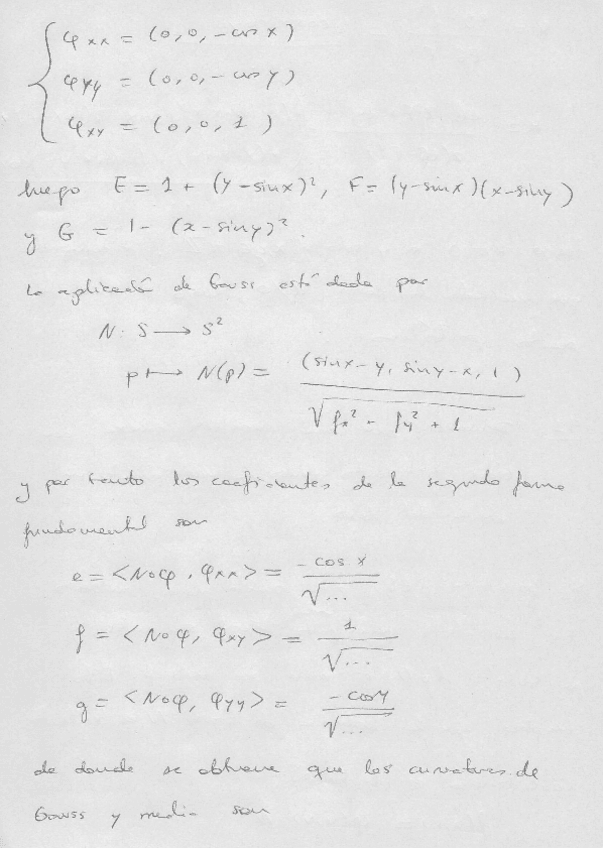 φxx = (0, 0, -cos x)
φyy = (0, 0, -cos y)
φxy = (0, 0, 1)
luego E = 1 + (y - sinx)², F = (y - sinx)(x - siny)
y G = 1 - (x - siny)².
La aplicación de Gauss está dada por
N: S → S²
p ↦ N(p) = (sinx - y, siny - x, 1)
√fx² - fy² + 1
y por tanto los coeficientes de la segunda forma
fundamental son
e = <N∘φ, φxx> = -cos x / √...
f = <N∘φ, φxy> = 1 / √...
g = <N∘φ, φyy> = -cos y / √...
de donde se obtiene que las curvaturas de
Gauss y media son